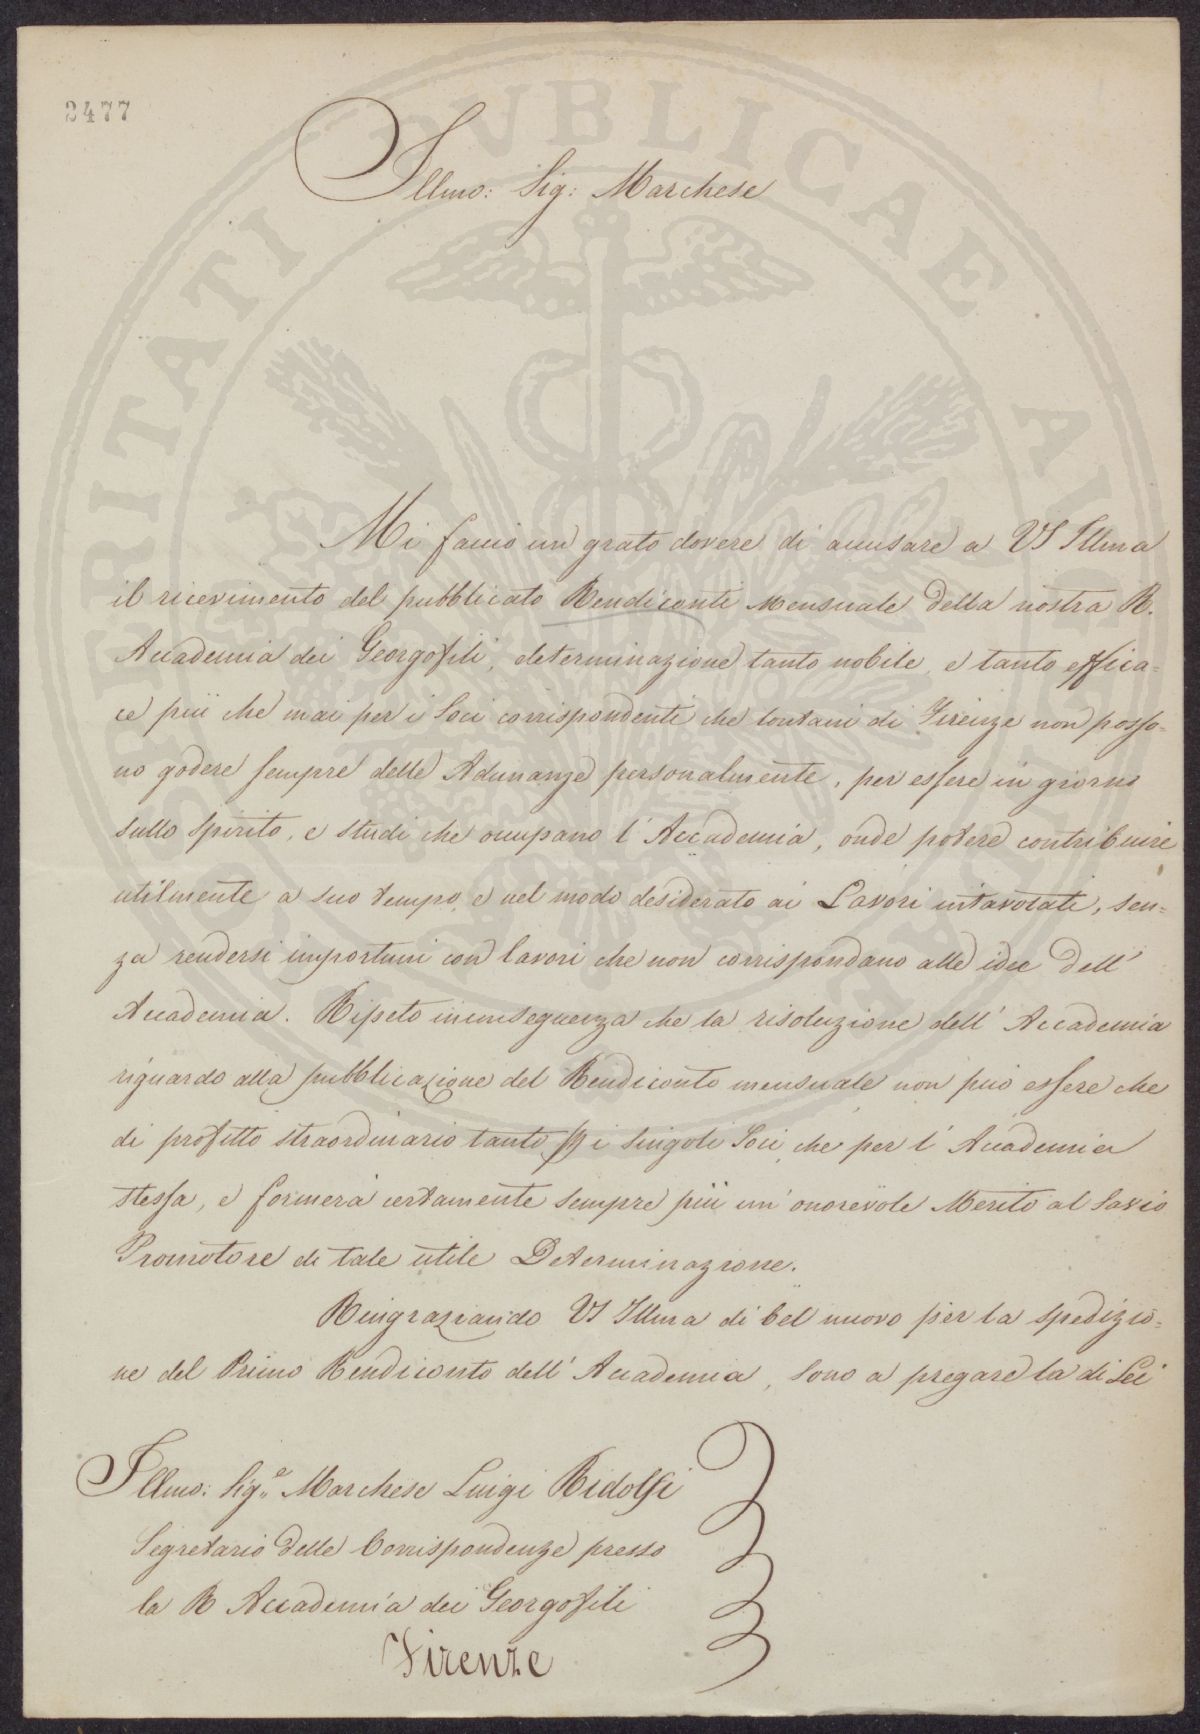 2477
PROSPERITATI PUBLICAE AUGENDAE
Illmo: Sig: Marchese
Mi faccio un grato dovere di accusare a VS Illma
il ricevimento del pubblicato Rendiconti Mensuale della nostra R.
Accademia dei Georgofili, determinazione tanto nobile, e tanto effica=
ce più che mai per i Soci corrispondenti che lontani di Firenze non posso=
no godere sempre delle Adunanze personalmente, per essere in giorno
sullo spirito, e studi che occupano l'Accademia, onde potere contribuire
utilmente a suo tempo, e nel modo desiderato ai Lavori intavolati, sen=
za rendersi importuni con lavori che non corrispondano alle idee dell'
Accademia. Ripeto inconseguenza che la risoluzione dell' Accademia
riguardo alla pubblicazione del Rendiconto mensuale non può essere che
di profitto straordinario tanto p i singoli Soci, che per l'Accademia
stessa, e formerà certamente sempre più un' onorevole Merito al Savio
Promotore di tale utile Determinazione.
Ringraziando VS Illma di bel nuovo per la spedizio=
ne del Primo Rendiconto dell' Accademia, sono a pregare la di Lei
Illmo: Sig.e Marchese Luigi Ridolfi
Segretario delle Corrispondenze presso
la R Accademia dei Georgofili
Firenze